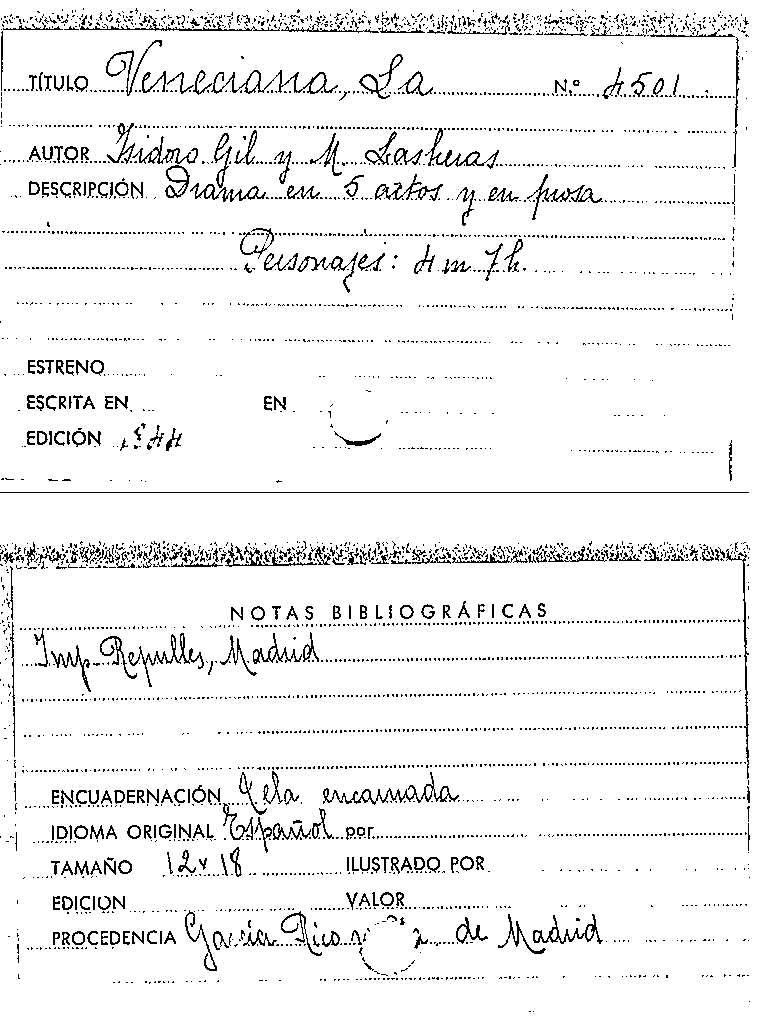 TÍTULO Veneciana, La N.º 4501
AUTOR Isidoro Gil y M. Lasheras
DESCRIPCIÓN Drama en 5 actos y en prosa
Personajes: 4 m 7 h.
ESTRENO
ESCRITA EN EN
EDICIÓN 1844
NOTAS BIBLIOGRÁFICAS
Imp. Repulles, Madrid
ENCUADERNACIÓN Tela encarnada
IDIOMA ORIGINAL Español por
TAMAÑO 12 x 18 ILUSTRADO POR
EDICION VALOR
PROCEDENCIA García Rico y de Madrid